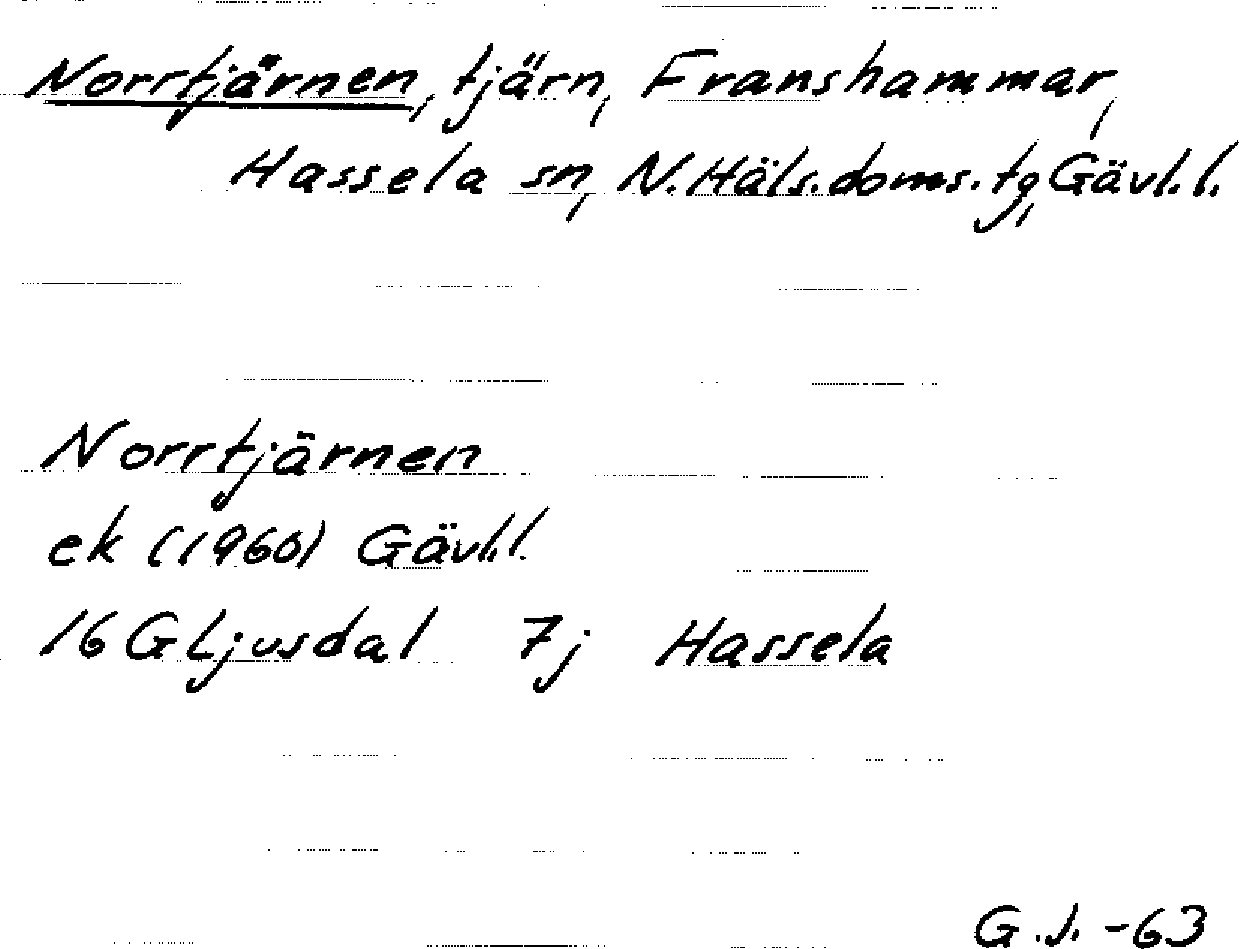 Norrtjärnen, tjärn, Franshammar,
Hassela sn, N.Häls.doms.tg, Gävl.l.
Norrtjärnen
ek (1960) Gävl.l.
16G Ljusdal 7j Hassela
G.J. -63